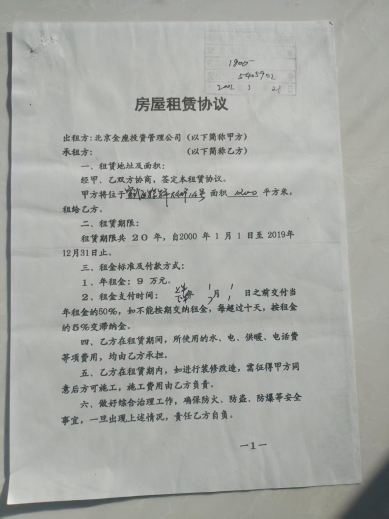 1800-
房屋租赁协议
出租方:北京金鹿投资管理公司(以下简称甲方)
承租方: (以下简称乙方)
一、租赁地址及面积:
经甲、乙双方协商,签定本租赁协议。
甲方将位于 面积 平方米,
租给乙方。
二、租赁期限:
租赁期限共 20 年,自2000 年 1 月 1 日至 2019年
12月31日止。
三、租金标准及付款方式:
1、年租金:9 万元.
2、租金支付时间: 月 日之前交付当
年租金的50%,如不能按期交纳租金,每超过十天,按租金
的5%交滞纳金.
四、乙方在租赁期间,所使用的水、电、供暖、电话费
等项费用,均由乙方承担。
五、乙方在租赁期内,如进行装修改造,需征得甲方同
意后方可施工,施工费用由乙方负责。
六、做好综合治理工作,确保防火、防盗、防爆等安全
事宜,一旦出现上述情况,责任乙方自负。
—1—